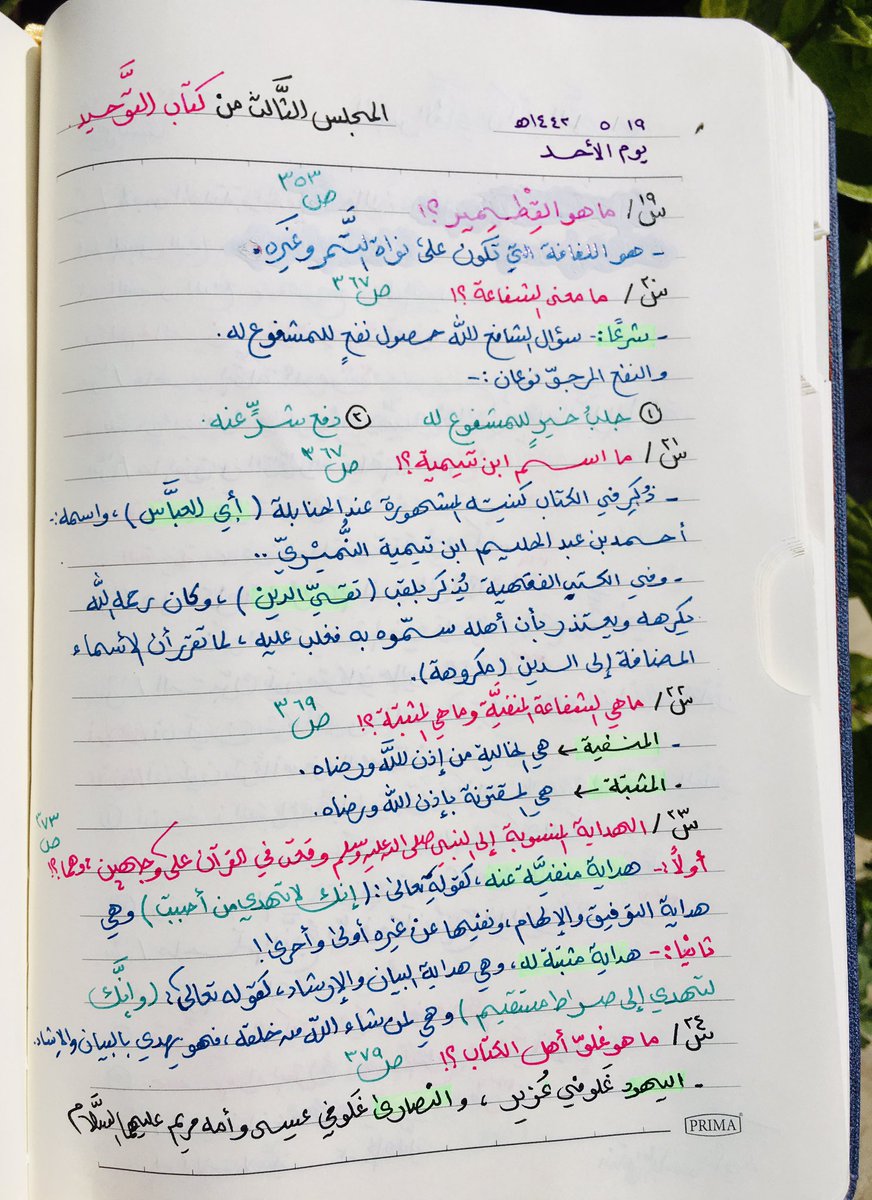 ١٩ ٥ ١٤٤٢هـ
يوم الأحد
المجلس الثَّالث من كتاب التوَّحيد
س١٩/ ما هو القِطْمِير؟! ص٣٥٣
- هو اللفافة التي تكون على نواة التَّمر وغيره.
س٢٠/ ما معنى الشفاعة؟! ص٣٦٧
- شرعًا:- سؤال الشافع الله حصول نفعٍ للمشفوع له.
والنفع المرجوّ نوعان:-
① جلبُ خيرٍ للمشفوع له ② دفع شرٍّ عنه.
س٢١/ ما اسم ابن تيمية؟! ص٣٦٧
- ذُكِر في الكتاب كنيته المشهورة عند الحنابلة (أبي العبَّاس)، واسمه:-
أحمد بن عبد الحليم ابن تيمية النُّميْريّ..
- وفي الكتب الفقهية يُذكر بلقب (تقيّ الدين)، وكان رحمه الله
يكرهه ويعتذر بأن أهله سمّوه به فغلب عليه، لما تقرر أن الأسماء
المضافة إلى الدين (مكروهة).
س٢٢/ ماهي الشفاعة المنفيَّة وماهي المثبتة؟! ص٣٦٩
- المنفية ← هي الخالية من إذن الله ورضاه.
- المثبتة ← هي المقترنة بإذن الله ورضاه.
س٢٣/ الهداية المنسوبة إلى النبي صلى الله عليه وسلم وقعت في القرآن على وجهين، وهما؟! ص٣٧٣
أولاً:- هداية منفيَّة عنه، كقوله تعالى: (إنك لا تهدي من أحببت) وهي
هداية التوفيق والإلهام، ونفيها عن غيره أولى وأحرى!
ثانيًا:- هداية مثبتة له، وهي هداية البيان والإرشاد، كقوله تعالى: (وإنَّك
لتهدي إلى صراط مستقيم) وهي لمن شاء الله من خلقه، فهو يهدي بالبيان والإرشاد.
س٢٤/ ما هو غلوّ أهل الكتاب؟! ص٣٧٩
- اليهود غلو في عُزير، والنصارى غلو في عيسى وأمه مريم عليهما السَّلام
PRIMA